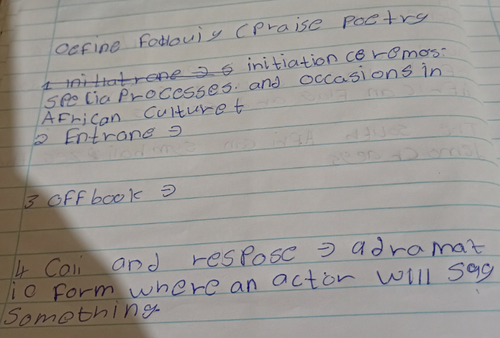 Define Following (Praise Poetry
1 initiatrone → s initiation ceremos:
specia Processes. and occasions in
AFrican Culturet
2 Entrane →
3 OFF book →
4 Call and respose → a dramat
ic Form where an actor Will Say
Something